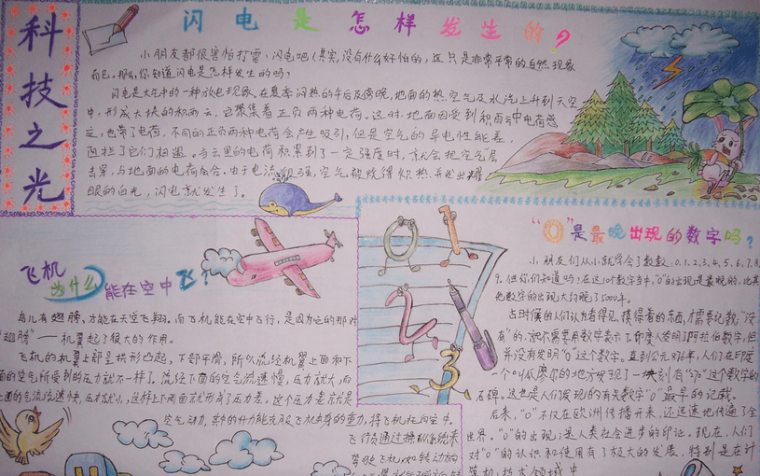 科技之光
闪电是怎样发生的?
小朋友都很害怕打雷、闪电吧(其实,没有什么好怕的,这只是非常平常的自然现象
而已。那么,你知道闪电是怎样发生的吗?
闪电是大气中的一种放电现象。在夏季闷热的午后及傍晚,地面的热空气及水汽上升到天空
中,形成大块的积雨云,它聚集着正负两种电荷。这时,地面因受到积雨云中电荷感
应,也带了电荷。不同的正负两种电荷会产生吸引,但是空气的导电性能差,
阻拦了它们相遇。当云里的电荷积累到了一定强度时,就会把空气层
击穿,与地面的电荷结合。由于电流很强,空气都被烧得炽热,并发出耀
眼的白光,闪电就发生了。
飞机为什么能在空中飞?
鸟儿有翅膀,才能在天空飞翔。而飞机能在空中飞行,是因为它的那对
翅膀"——机翼起了很大的作用。
飞机的机翼上部呈拱形凸起,下部平滑,所以流经机翼上面和下
面的空气所受到的压力就不一样了。流经下面的空气流速慢,压力就大,而
上面的气流流速快,压力就小,这样上下两面就形成了压力差。这个压力差就是
空气动力,它的升力能克服飞机本身的重力,将飞机托向空中。
飞行员通过操纵系统来
驾驶飞机,如转动的
0 1 2 3
"0"是最晚出现的数字吗?
小朋友们从小就学会了数数:0、1、2、3、4、5、6、7、8、
9。但你们知道吗?在这10个数字当中,"0"的出现是最晚的,比其
他数字的出现大约晚了5000年。
古时候的人们认为看得见、摸得着的东西,才需要记数,"没
有"的,就不需要用数字表示了。印度人发明了阿拉伯数字,但
并没有发明"0"这个数字。直到公元
石碑。这也是人们发现的有关数字"0"最早的记载。
后来,"0"不仅在欧洲传播开来,还迅速地传遍了全
世界。"0"的出现,是人类社会进步的印记。现在,人们
对"0"的认识和使用有了极大的发展,特别是在计
算机技术领域中